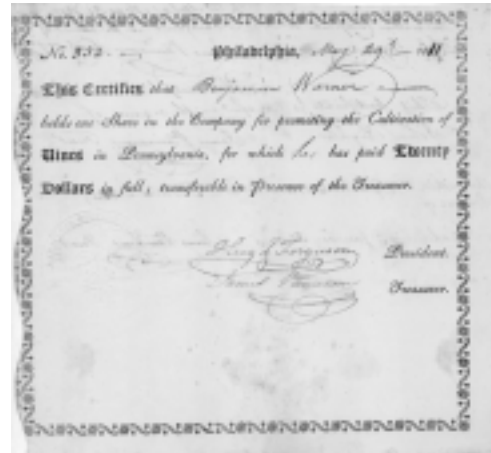 No. 332
Philadelphia, May 29th 1811
This Certifies that Benjamin Warner
holds one Share in the Company for promoting the Cultivation of
Vines in Pennsylvania, for which he, has paid Twenty
Dollars in full; transferable in Presence of the Treasurer.
Ferguson President.
Treasurer.